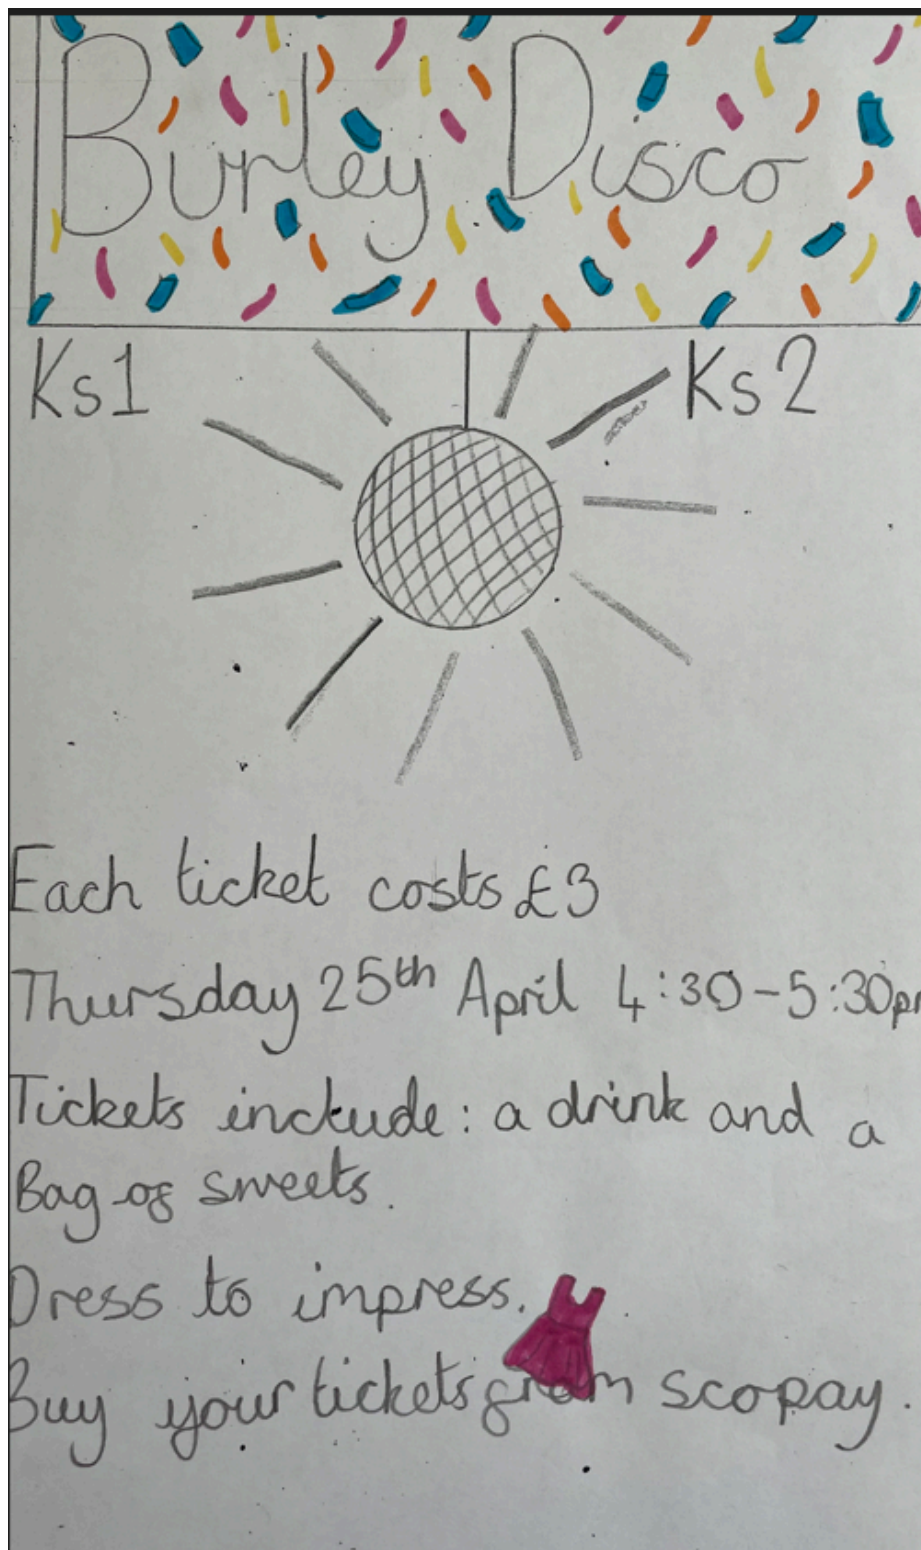 Burley Disco
Ks1 Ks2
Each ticket costs £3
Thursday 25th April 4:30-5:30pm
Tickets include: a drink and a
Bag of sweets.
Dress to impress.
Buy your tickets from scopay.